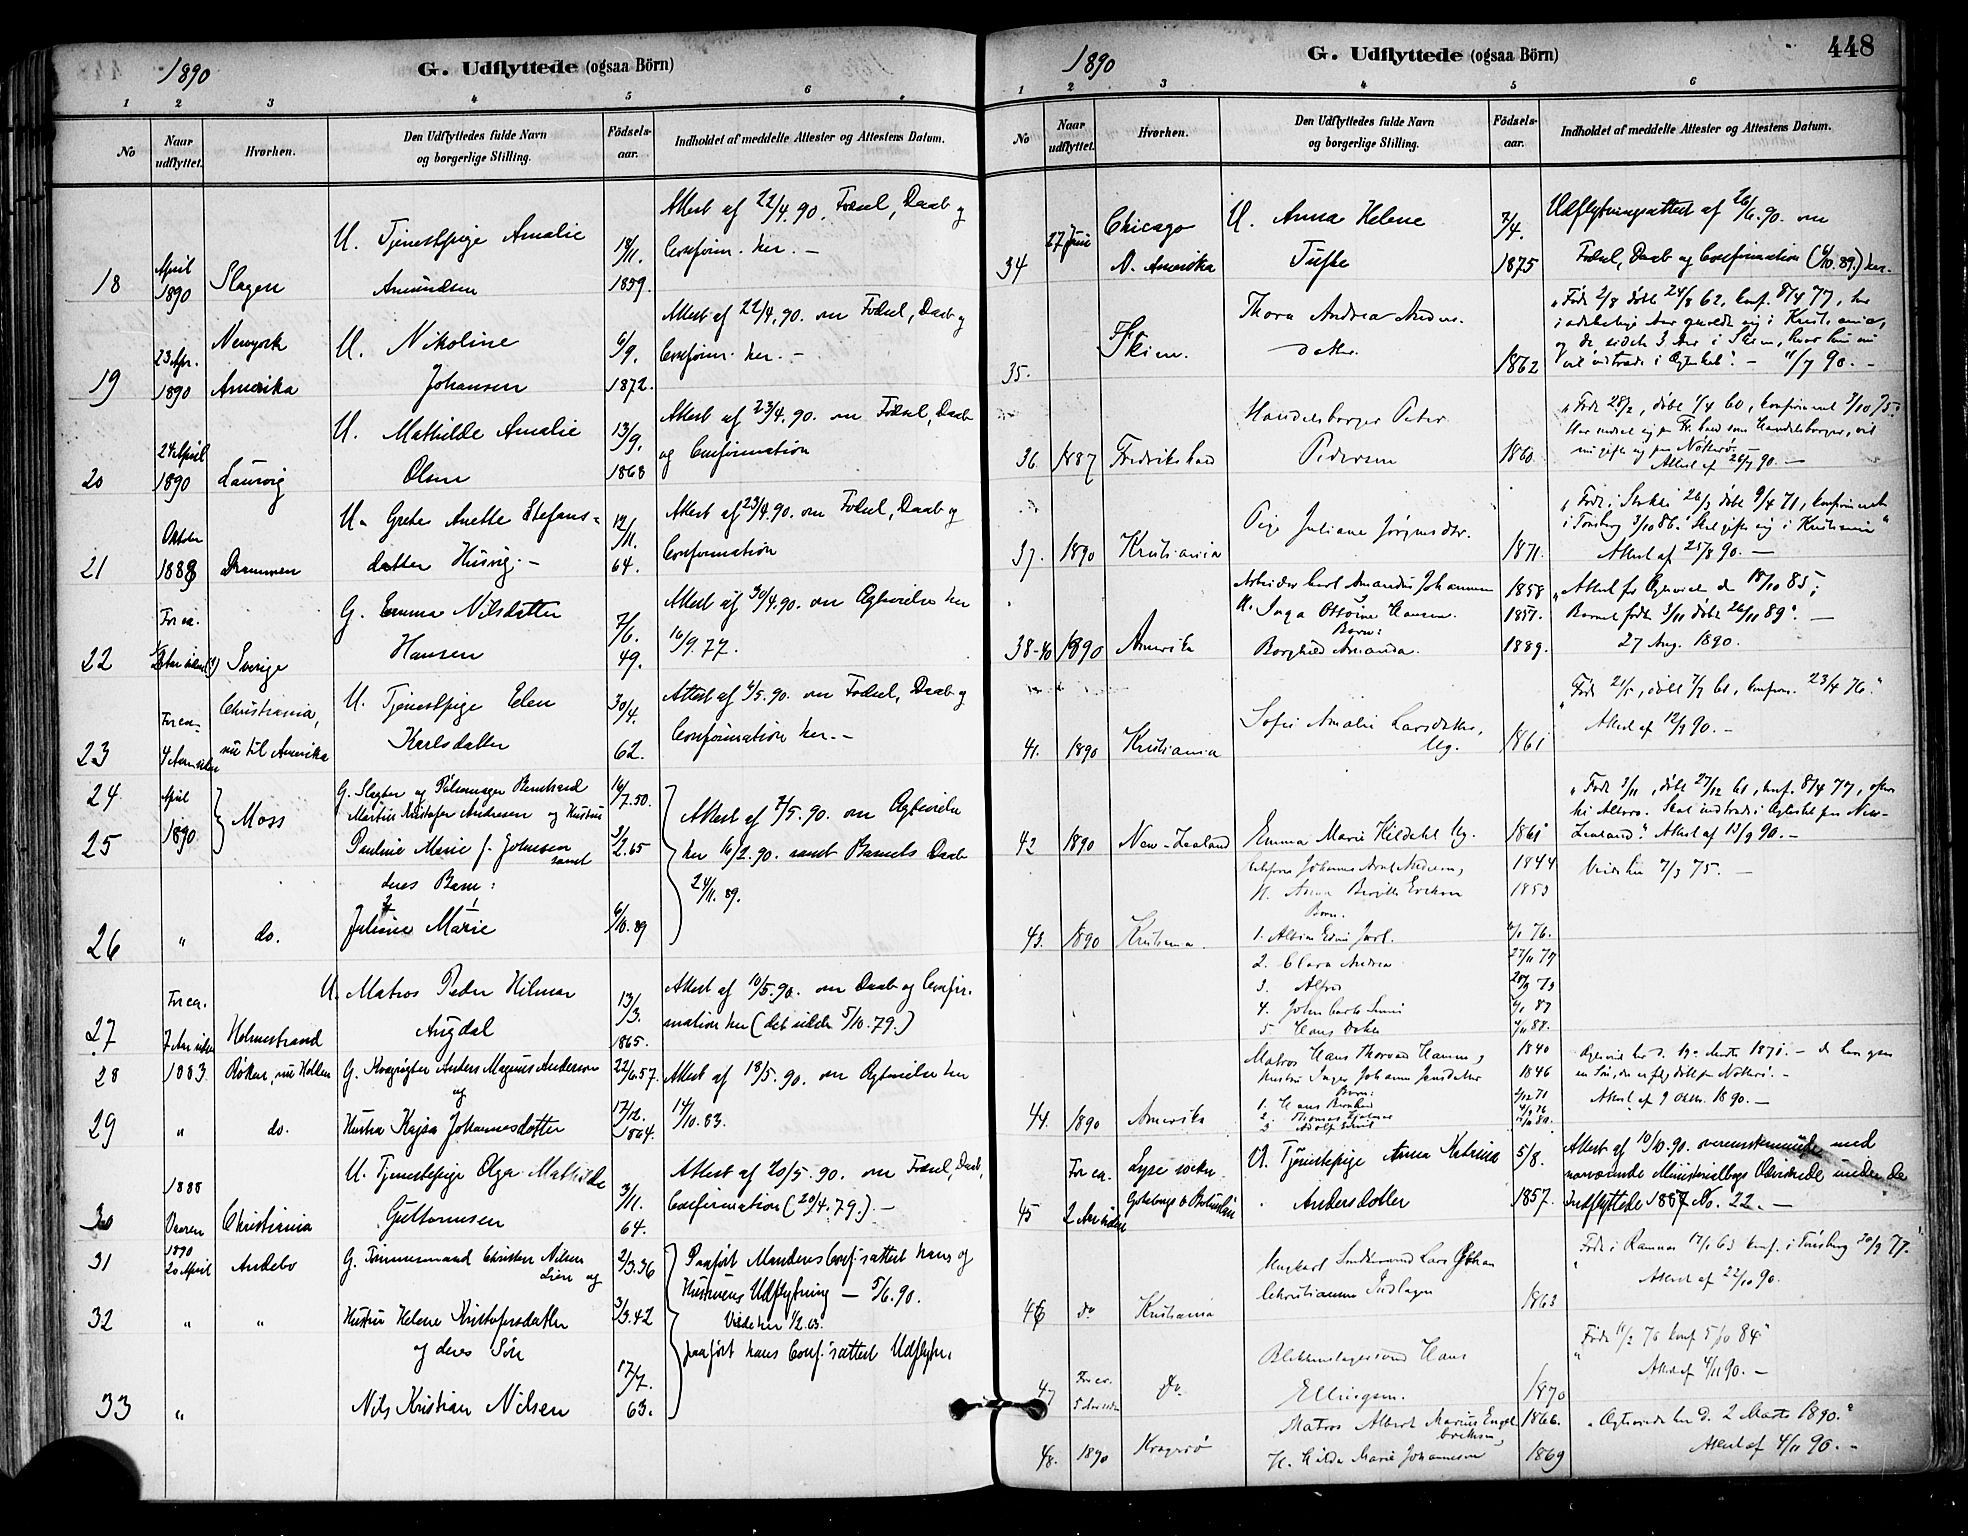 1890
G. Udflyttede (ogsaa Börn)
1 2 3 4 5 6
No
Naar udflyttet.
Hvorhen.
Den Udflyttedes fulde Navn
og borgerlige Stilling.
Födsels-
aar.
Indholdet af meddelte Attester og Attestens Datum.
18 April 1890 Slagen U. Tjenestpige Amalie Amundsen 18/11. 1859. Attest af 22/4.90. Fødsel, Daab og
Confirm. her. –
19 23 Apr. 1890 Newyork Amerika U. Nikoline Johansen 6/9. 1872. Attest af 22/4.90. om Fødsel, Daab og
Confirm. her. –
20 24 April 1890 Laurvig U. Mathilde Amalie Olsen 13/9. 1868 Attest af 23/4.90. om Fødsel, Daab
og Confirmation
21 Oktober 1888 Drammen U. Grete Anette Stefans-
datter Husvig. – 12/11. 64. Attest af 23/4.90. om Fødsel, Daab og
Confirmation
22 For ca. Sverige G. Emma Nilsdatter Hansen 7/6. 49. Attest af 30/4.90. om Ægtevielse her
16/9.77.
23 For ca. 4 Aar siden Christiania, nu til Amerika U. Tjenestpige Elen Karlsdatter 30/4. 62. Attest af 6/5.90. om Fødsel, Daab og
Confirmation her. –
24 April 1890 Moss G. Slagter og Pølsemager Bernhard
Martin Kristofer Andresen og Hustru 16/7.50.
25 Pauline Marie f. Johnsen samt 3/2.65
Attest af 7/5.90. om Ægtevielse
her 16/2.90. samt Barnets Daab
24/11.89.
deres Barn:
26 " do. Juline Marie 6/10.89
27 For ca. 7 Aar siden Holmestrand U. Matros Peder Hilmar Augdal 13/3. 1865. Attest af 10/5.90. om Daab og Confir-
mation her (det sidste 5/10.79.)
28 1883 Røken, nu Hollen G. Anders Magnus Anderson og 22/6.57. Attest af 18/5.90. om Ægtevielse her
29 " do. Hustru Kajsa Johannesdotter 17/12. 1864. 14/10.83.
30 1888 Vaaren Christiania U. Tjenestepige Olga Mathilde Guttormsen 3/11. 64. Attest af 20/5.90. om Fødsel, Daab,
Confirmation (20/4.79.). –
31 1890 20 April Andebo G. Tømmermand Christian Nilsen Lien og 2/3.36 Paaført Mandens Conf.sattest hans og
Hustruens Udflytning – 5/6.90.
32 " " Hustru Helene Kristofersdatter 3/3.42 Viede her 1/2.63.
og deres Søn paaført hans Conf.sattest Udflytn.
33 " Nils Kristian Nilsen 17/7. 63.
1890
G. Udflyttede (ogsaa Börn)
448
1 2 3 4 5 6
No
Naar
udflyttet.
Hvorhen.
Den Udflyttedes fulde Navn
og borgerlige Stilling.
Födsels-
aar.
Indholdet af meddelte Attester og Attestens Datum.
34 27 Juni Chicago N. Amerika U. Anna Helene Tufte 7/4. 1875 Udflytningsattest af 26/6.90. om
Fødsel, Daab og Confirmation (6/10.89.) her.
35. Skien. Thora Andrea Anders-
datter. 1862 "Født 2/8 døbt 24/8 62, konf. 8/4 77, har
i adskillige Aar opholdt sig i Kristiania,
og de sidste 3 Aar i Skien, hvor hun nu
vil indtræde i Ægteskab". – 11/7 90. –
36. 1887 Fredrikstad Handelsborger Peter Pedersen 1860. "Født 28/2, døbt 9/4 60, konfirmeret 3/10 75."
Har nedsat sig paa Fr.stad som Handelsborger, vil
nu gifte sig paa Nøtterø. –
Attest af 26/7 90. –
37. 1890 Kristiania Pige Juliane Jørgensdtr. 1871. "Født i Stokke 26/3 døbt 9/4 71, konfirmeret
i Tønsberg 3/10 86." Skal gifte sig i Kristiania
Attest af 25/8 90. –
38-40 1890 Amerika Arbeider Carl Amandus Johannesen 1858 "Attest for Ægteviede d. 18/10 85;
H. Inga Ottovine Hansen. 1857. Barnet født 3/11 døbt 26/11 89". –
Barn:
Borghild Amanda. 1889. 27 Aug. 1890.
41. 1890 Kristiania Sofie Amalie Larsdatter, Ug. 1861 "Født 21/5, døbt 7/7 61, konfirm. 23/4 76."
Attest af 12/9 90. –
42 1890 New-Zealand Emma Marie Kildahl Ug. 1861 "Født 3/11, døbt 27/12 61, konf. 8/4 77,
Skal indtræde i Ægteskab paa New-
Zealand". Attest af 13/9 90. –
43. 1890 Kristiania. Johannes Andersen, 1844 Viede her 7/3 75. –
H. Anna Birgitte Eriksen 1853
Børn.
1. Albin Edvin Jarl. 76.
2. Clara Andrea 27/11 77
3. Alfred 79
4. John Carl 87
5. Hans 88.
44. 1890 Amerika Matros Hans Thorvald Hansen, 1840 Ægteviede her d. 19de Marts 1871. –
Hustru Inger Johanne Jensdatter 1846
Børn:
1. Hans Bernhard 71
2. Thomas Hjalmar 76
3. Adolf 80. Attest af 9 Oktbr. 1890. –
45 For ca. 2 Aar siden Lyse socken Göteborgs & Bohuslän U. Tjenestepige Anna Katrina Andersdotter 5/8. 1857. Attest af 10/10.90. overensstemmende med
nærværende Ministerialbogs Overskrede under de
Indflyttede 1887 No. 22. –
46 do Kristiania Ungkarl Lars Johan
Christiansen 1863 "Født i Ramnes 17/1 63 konf. i Tønsberg 30/9 77."
Attest af 22/10 90.
47 For ca. 5 Aar siden Do. Blikkenslagersvend Hans Ellingsen. 1870 "Født 11/2 70 konf. 5/10 84"
Attest af 4/11 90. –
48. 1890 Kragerø Matros Albert Marius Engel-
briktsen, 1866. "Ægteviede her d. 2 Marts 1890."
H. Hilda Marie Johannesen 1869 Attest af 4/11 90. –